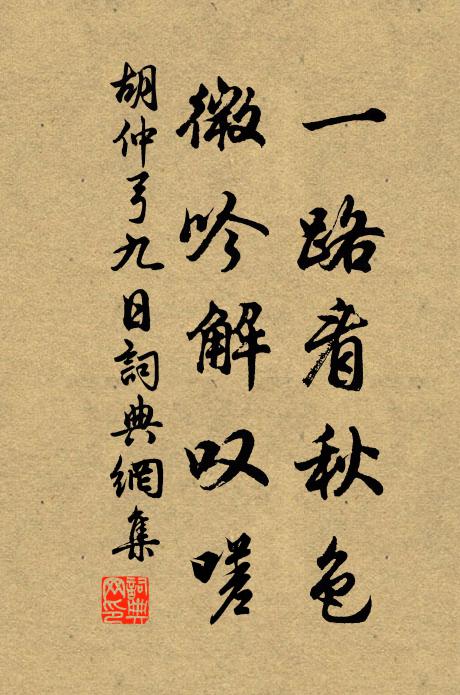 一路看秋色
微吟解叹嗟
胡仲弓九日詞典網集
詞典網印